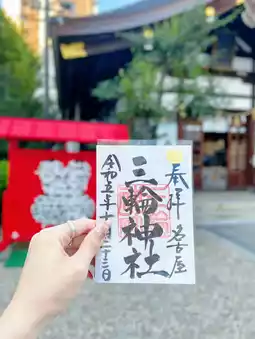 奉拝 名古屋
三輪神社
令和五年十月二十二日